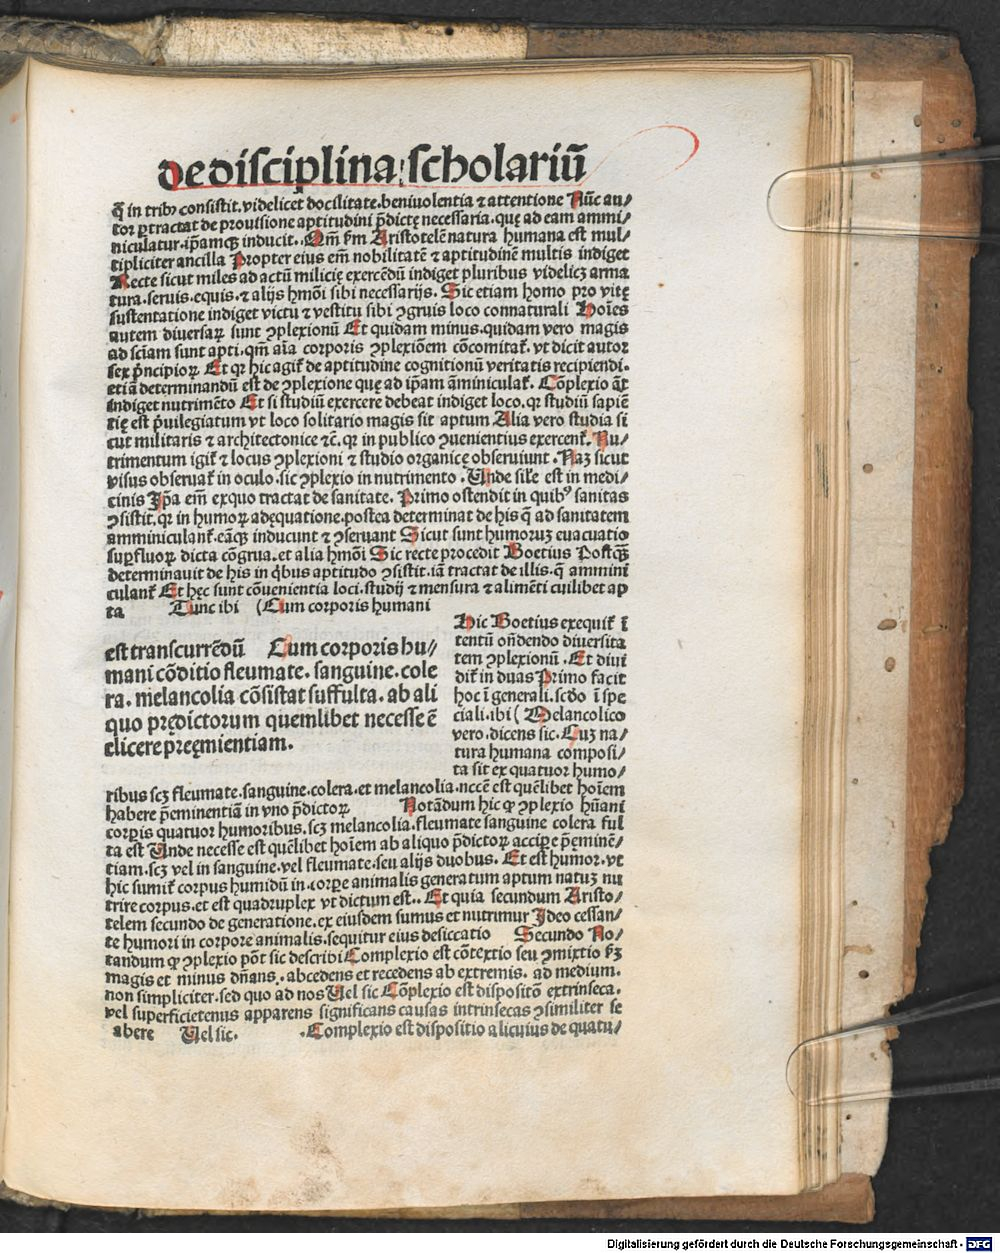 de disciplina scholariū
q̄ in tribꝰ consistit. videlicet docilitate. beniuolentia ⁊ attentione Nūc au/
tor ꝑtractat de prouisione aptitudini p̄dicte necessaria. quę ad eam ammi/
niculatur. ip̄amqꝫ inducit. Qm̄ ẜm Aristotelē natura humana est mul/
tipliciter ancilla Propter eius em̄ nobilitatē ⁊ aptitudinē multis indiget
Recte sicut miles ad actū milicię exercēdū indiget pluribus videlicꝫ arma
tura. seruis. equis. ⁊ alijs hmōi sibi necessarijs. Sic etiam homo pro vitę
sustentatione indiget victu ⁊ vestitu sibi ꝯgruis loco connaturali Hoīes
autem diuersaꝝ sunt ꝯplexionū Et quidam minus. quidam vero magis
ad sciām sunt apti. qm̄ aīa corporis ꝯplexiōem cōcomitat̄. vt dicit autor
sex p̄ncipioꝝ Et qꝛ hic agit̄ de aptitudine cognitionū veritatis recipiendi.
etiā determinandū est de ꝯplexione que ad ip̄am āminiculat̄. Cōplexio āt
indiget nutrimēto Et si studiū exercere debeat indiget loco. qꝛ studiū sapiē
tię est p̄uilegiatum vt loco solitario magis sit aptum Alia vero studia si
cut militaris ⁊ architectonice ⁊c̄. qꝛ in publico ꝯuenientius exercent̄. Nu/
trimentum igit̄ ⁊ locus ꝯplexioni ⁊ studio organicę obseruiunt. Naꝫ sicut
visus obseruat̄ in oculo. sic ꝯplexio in nutrimento. Unde sil̄e est in medi/
cinis Ip̄a em̄ exquo tractat de sanitate. Primo ostendit in quibꝰ sanitas
ꝯsistit. qꝛ in humoꝝ adęquatione. postea determinat de his q̄ ad sanitatem
amminiculant̄. eāqꝫ inducunt ⁊ ꝯseruant Sicut sunt humoruꝫ euacuatio
suꝑfluoꝝ dicta cōgrua. et alia hmōi Sic recte procedit Boetius Postqꝫ̄
determinauit de his in qͥbus aptitudo ꝯsistit. iā tractat de illis. q̄ ammini
culant̄ Et hęc sunt cōuenientia loci. studij ⁊ mensura ⁊ alimēti cuilibet ap
ta Tunc ibi (Cum corporis humani
est transcurrēdū Cum corporis hu/
mani cōditio fleumate. sanguine. cole
ra. melancolia cōsistat suffulta. ab ali
quo prędictorum quemlibet necesse ē
elicere pręmientiam.
Hic Boetius exequit̄ ī
tentū on̄dendo diuersita
tem ꝯplexionū. Et diui
dit̄ in duas Primo facit
hoc ī generali. scdo ī spe
ciali. ibi (Melancolico
vero. dicens sic. Cuꝫ na/
tura humana composi/
ta sit ex quatuor humo/
ribus scꝫ fleumate. sanguine. colera. et melancolia. nccē est quēlibet hoīem
habere p̄eminentiā in vno p̄dictoꝝ Notādum hic ꝙ ꝯplexio hūani
corꝑis quatuor humoribus. scꝫ melancolia. fleumate sanguine colera ful
ta est Unde necesse est quēlibet hoīem ab aliquo p̄dictoꝝ acciꝑe p̄eminē/
tiam. scꝫ vel in sanguine. vel fleumate. seu alijs duobus. Et est humor. vt
hic sumit̄ corpus humidū in corꝑe animalis generatum aptum natuꝫ nu
trire corpus. et est quadruplex vt dictum est.. Et quia secundum Aristo/
telem secundo de generatione. ex eiusdem sumus et nutrimur Ideo cessan/
te humori in corpore animalis. sequitur eius desiccatio Secundo No/
tandum ꝙ ꝯplexio pōt sic describi Complexio est cōtextio seu ꝯmixtio ẜꝫ
magis et minus dn̄ans. abcedens et recedens ab extremis. ad medium.
non simpliciter. sed quo ad nos Uel sic Cōplexio est dispositō extrinseca.
vel superficietenus apparens significans causas intrinsecas ꝯsimiliter se
abere Uel sic. .Complexio est dispositio alicuius de quatu/
Digitalisierung gefördert durch die Deutsche Forschungsgemeinschaft - DFG